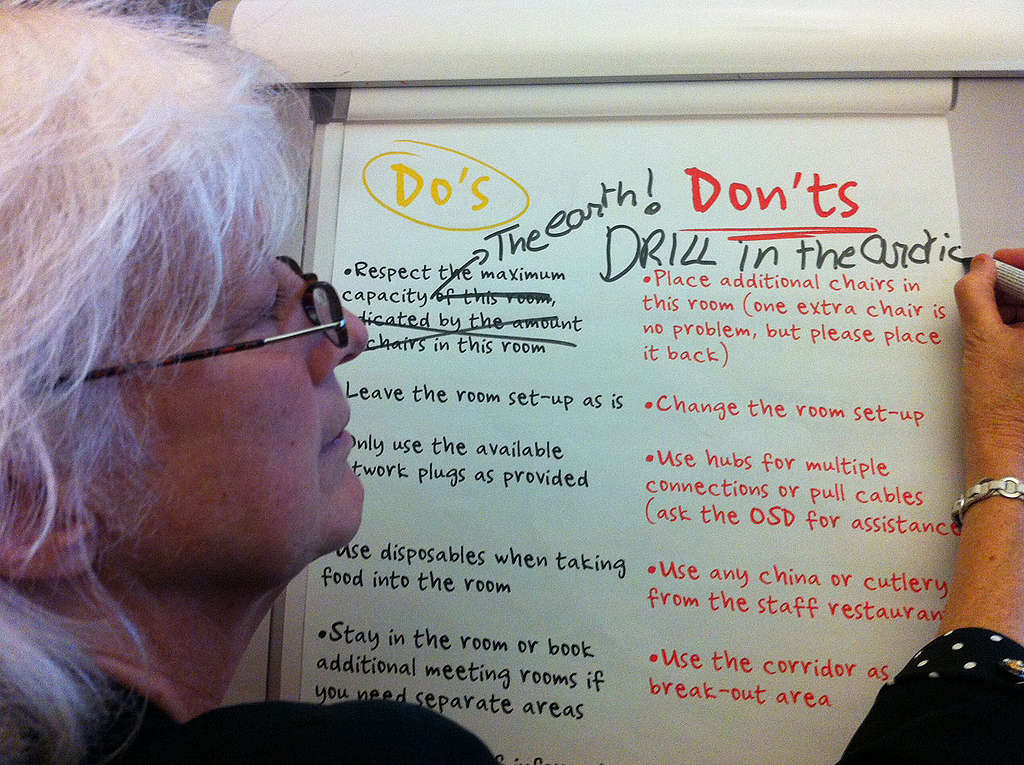 Do's
The earth!
•Respect the maximum
capacity of this room,
dicated by the amount
chairs in this room
Leave the room set-up as is
Only use the available
twork plugs as provided
use disposables when taking
food into the room
•Stay in the room or book
additional meeting rooms if
you need separate areas
Don'ts
DRILL in the arctic
•Place additional chairs in
this room (one extra chair is
no problem, but please place
it back)
•Change the room set-up
•Use hubs for multiple
connections or pull cables
(ask the OSD for assistance
•Use any china or cutlery
from the staff restauran
•Use the corridor as
break-out area